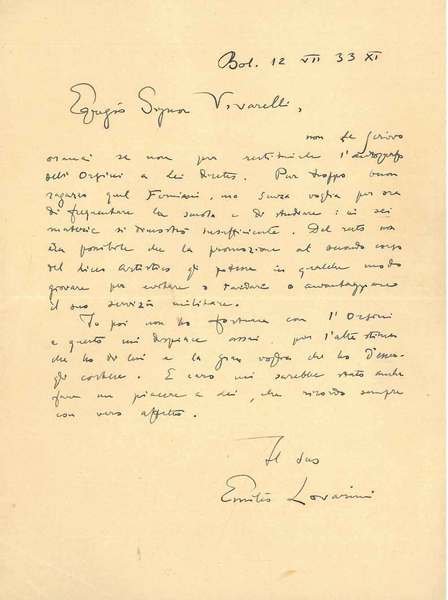 Bol. 12 VII 33 XI
Egregio Signor Vivarelli,
non Le scrivo
oramai se non per restituirle l'autografo
dell'Orsini a Lei diretto. Pur troppo buon
ragazzo quel Formiani, ma senza voglia per ora
di frequentare la scuola e di studiare: in sei
materie si dimostrò insufficiente. Del resto non
era possibile che la promozione al secondo corso
del liceo artistico gli potesse in qualche modo
giovare per evitare o tardare o avvantaggiare
il suo servizio militare.
Io poi non ho fortuna con l'Orsini
e questo mi dispiace assai, per l'alta stima
che ho di lui e la gran voglia che ho d'esser-
gli cortese. E caro mi sarebbe stato anche
fare un piacere a Lei, che ricordo sempre
con vero affetto.
Il suo
Emilio Lovarini